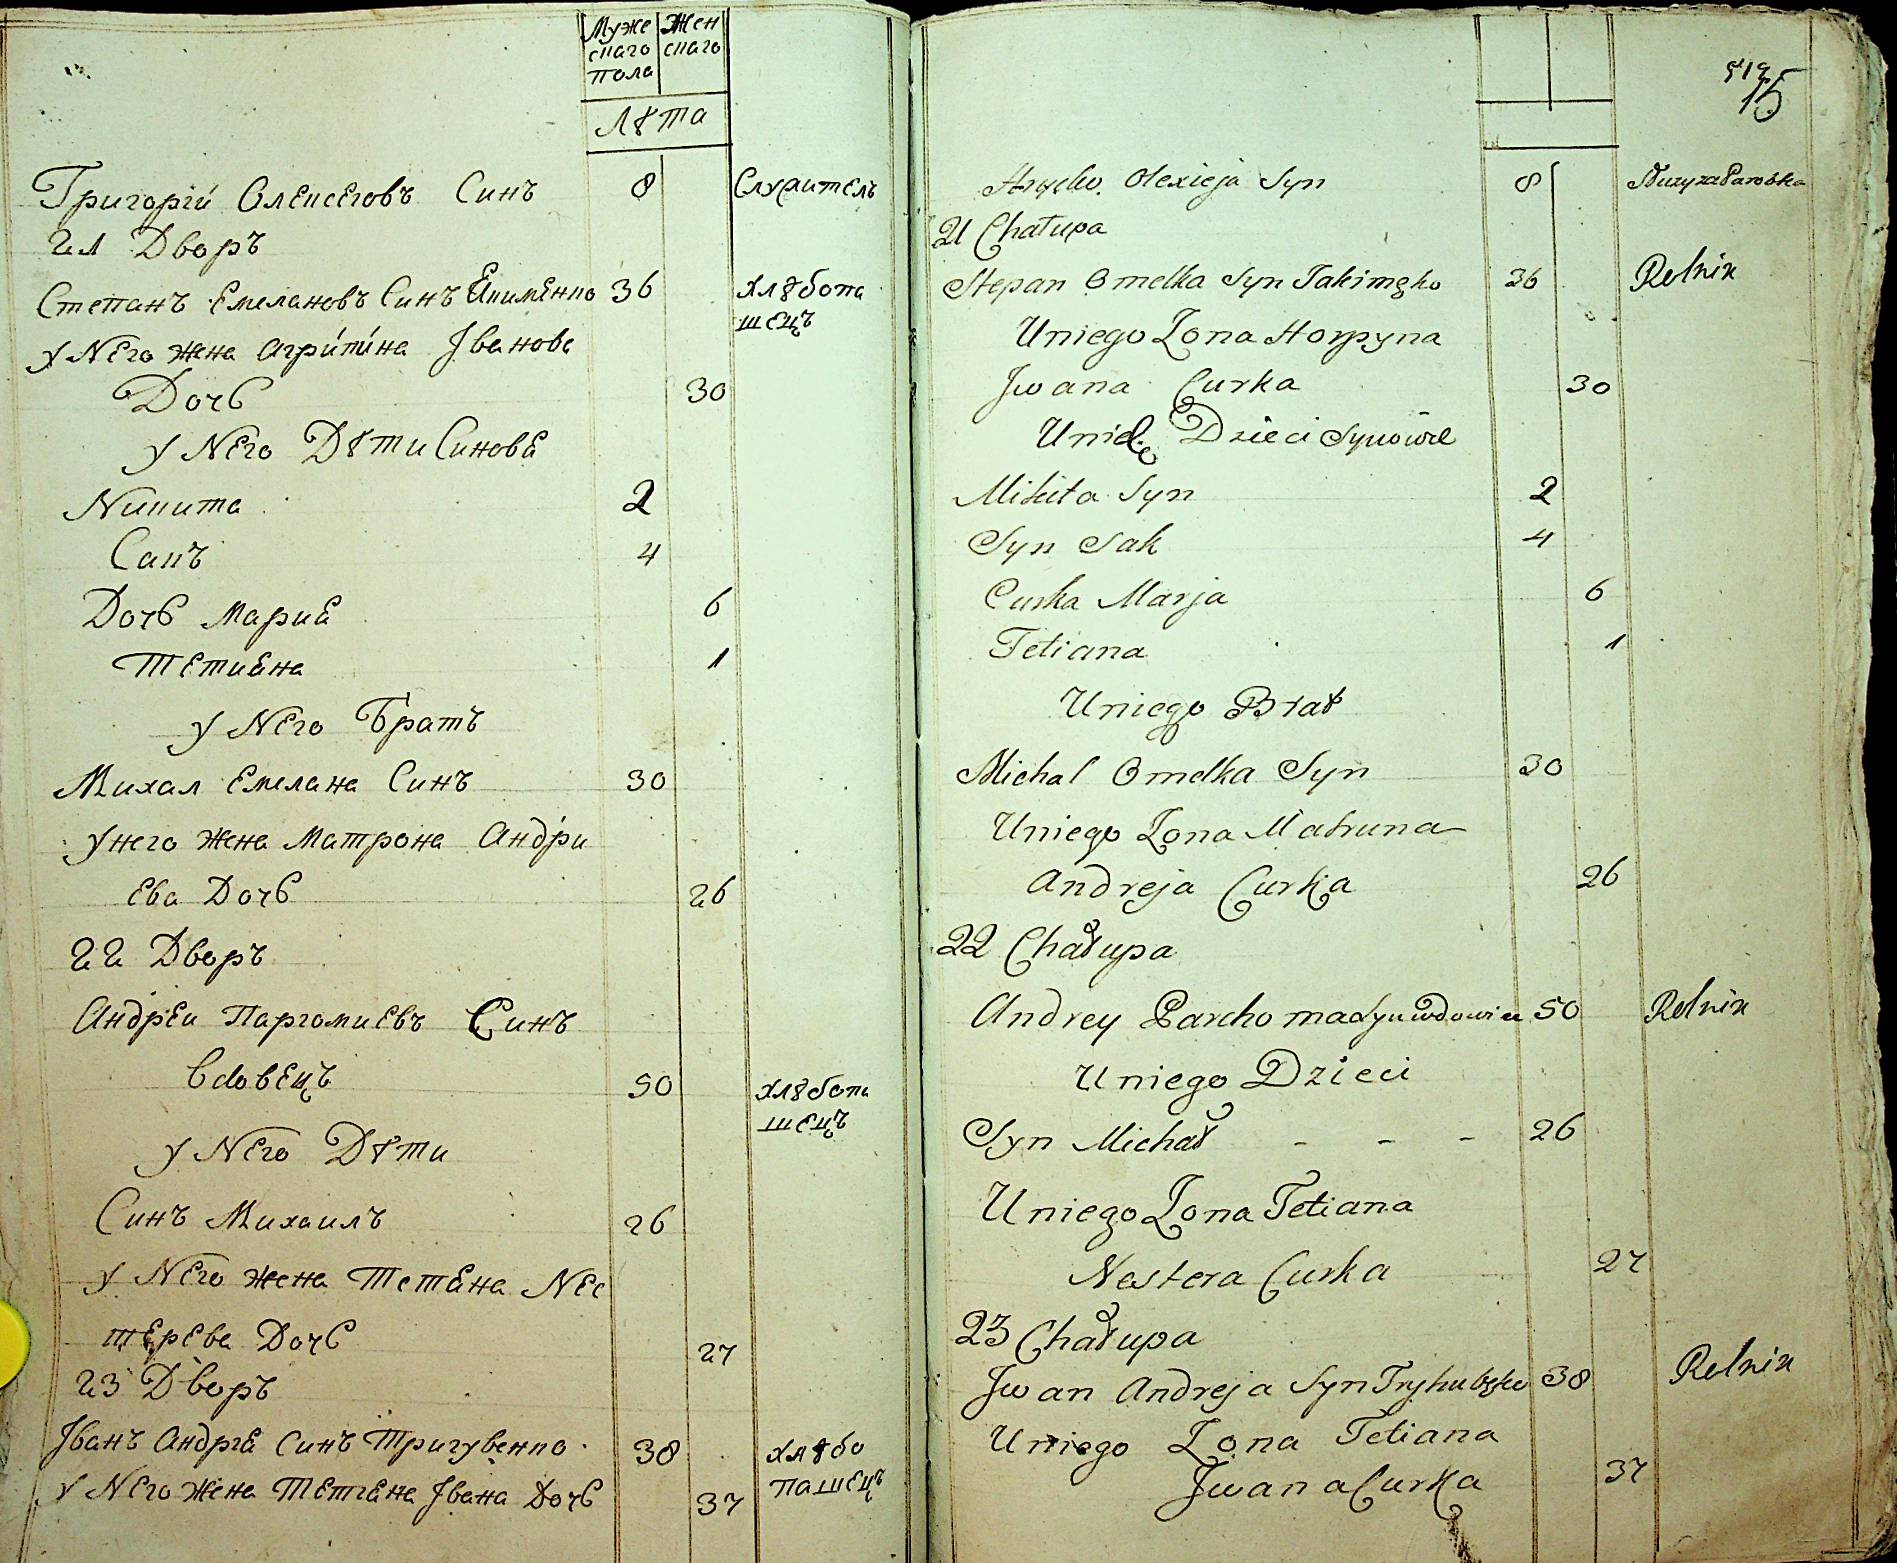 Муже Жен
скаго скаго
пола
Лѣта
Григорій Олексеговъ Синъ 8 Служитель
21 Дворъ
Степанъ Емелановъ Синъ Якименко 36 хлѣбопа
шецъ
у Него жена Агрипина Іванова
Дочь 30
у Него Дѣти Синовя
Никита 2
Сакъ 4
Дочь Мария 6
Тетияна 1
у Него Братъ
Михал Емеляна Синъ 30
у него жена Матрона Андри
ева Дочь 26
22 Дворъ
Андреи Пархомиевъ Синъ
Вдовецъ 50 хлѣбопа
шецъ
у Него Дѣти
Синъ Михаилъ 26
у Него жена Тетяна Нес
терева Дочь 27
23 Дворъ
Іванъ Андрея синъ Тригубенко 38 хлѣбо
у Него жена Тетяна Івана Дочь 37 пашецъ
15
Hrycko Olexieja Syn 8 Służy za Parobka
21 Chałupa
Stepan Omelka Syn Jakimęko 36 Rolnik
Uniego Żona Horpyna
Jwana Curka 30
Dzieci Synowie
Mikita Syn 2
Syn Sak 4
Curka Marja 6
Tetiana 1
Uniego Brat
Michal Omelka Syn 30
Uniego Żona Matruna
Andreja Curka 26
22 Chałupa
Andrey Parchoma Syn wdowiec 50 Rolnik
Uniego Dzieci
Syn Michał - - - 26
Uniego Żona Tetiana
Nestera Curka 27
23 Chałupa
Jwan Andreja Syn Tryhubęko 38 Rolnik
Uniego Żona Tetiana
Jwana Curka 37